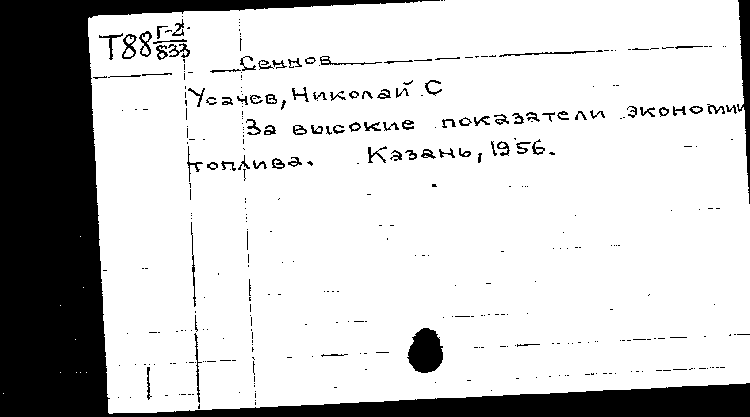 Т88 Г-2
833
Сеннов
Усачев, Николай С
За высокие показатели экономии
топлива. Казань, 1956.